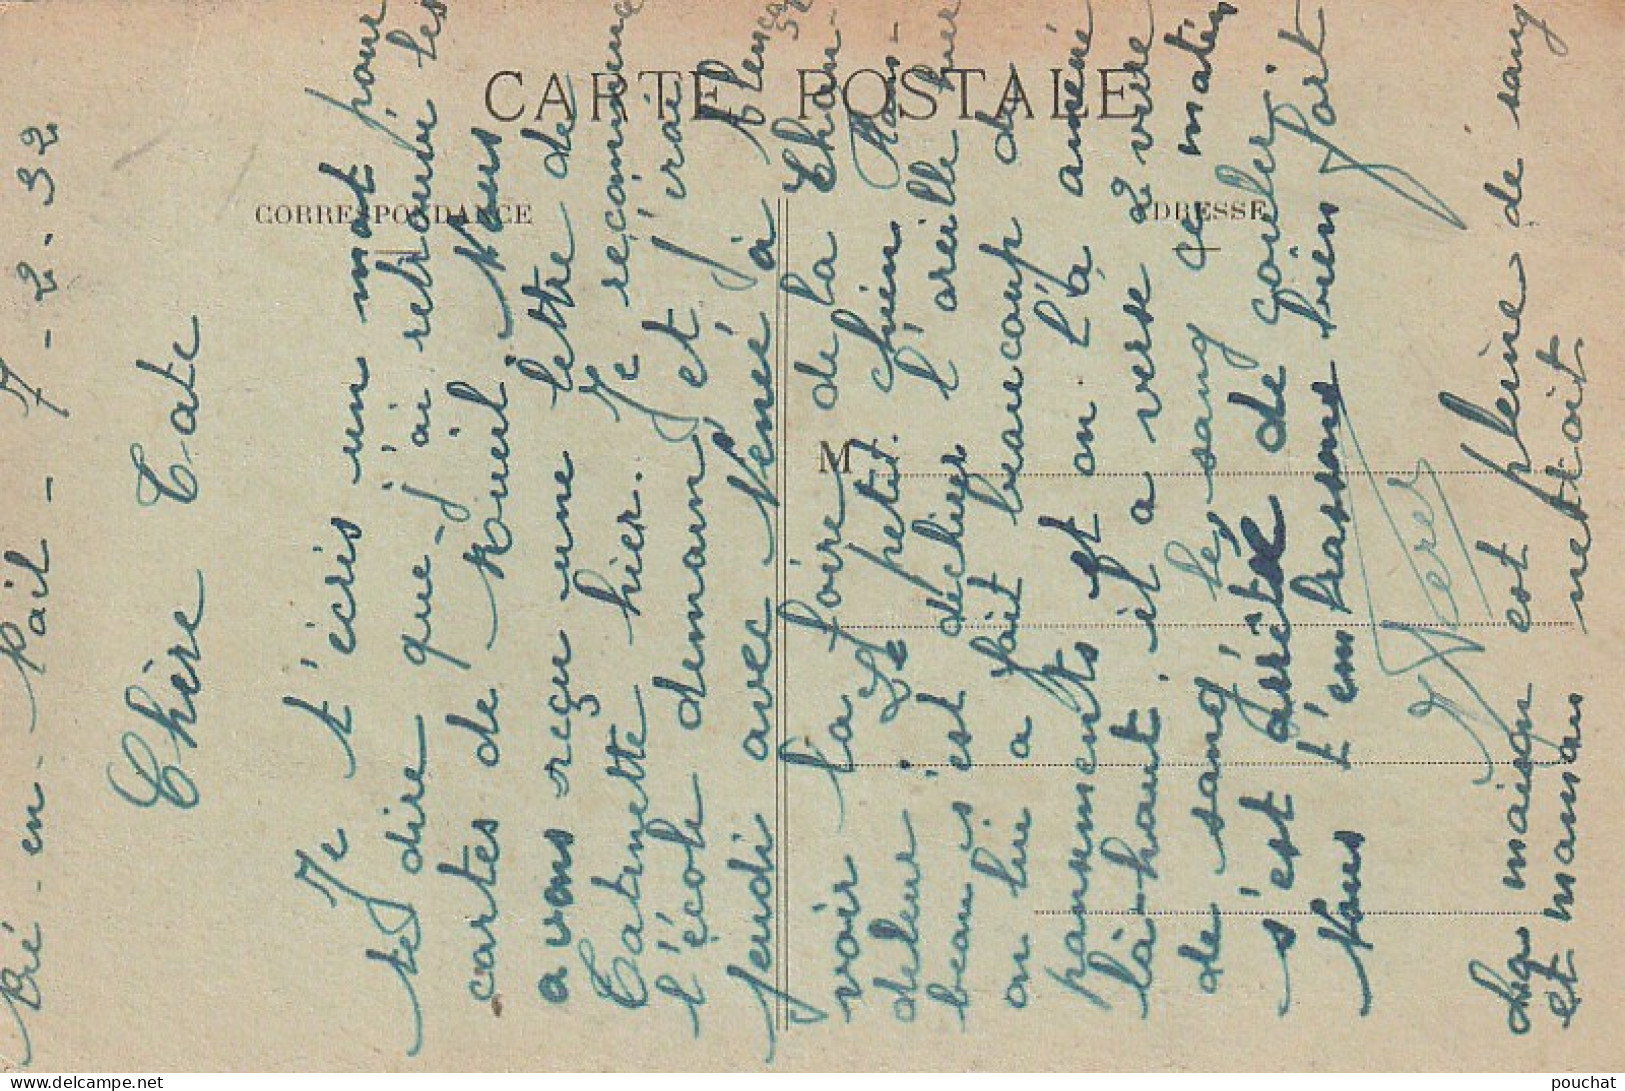 CARTE POSTALE
CORRESPONDANCE
ADRESSE
M
Pré-en-Pail - 7-2-32
Chère Tate
Je t'écris un mot pour
te dire que j'ai retrouvé les
cartes de Rueil. Nous
avons reçu une lettre de
Tatinette hier. Je recommence
l'école demain et j'irai
jeudi avec Néné à Alençon
voir la foire de la Chan-
deleur. Le petit chien Rous-
beau s'est déchiré l'oreille hier
on lui a fait beaucoup de
pansements et on l'a amené
là-haut, il a versé 2 verre
de sang, le sang ce matin
s'est arrêté de couler.
Nous t'embrassons bien fort
La maison est pleine de sang
et maman nettoit
pouchat